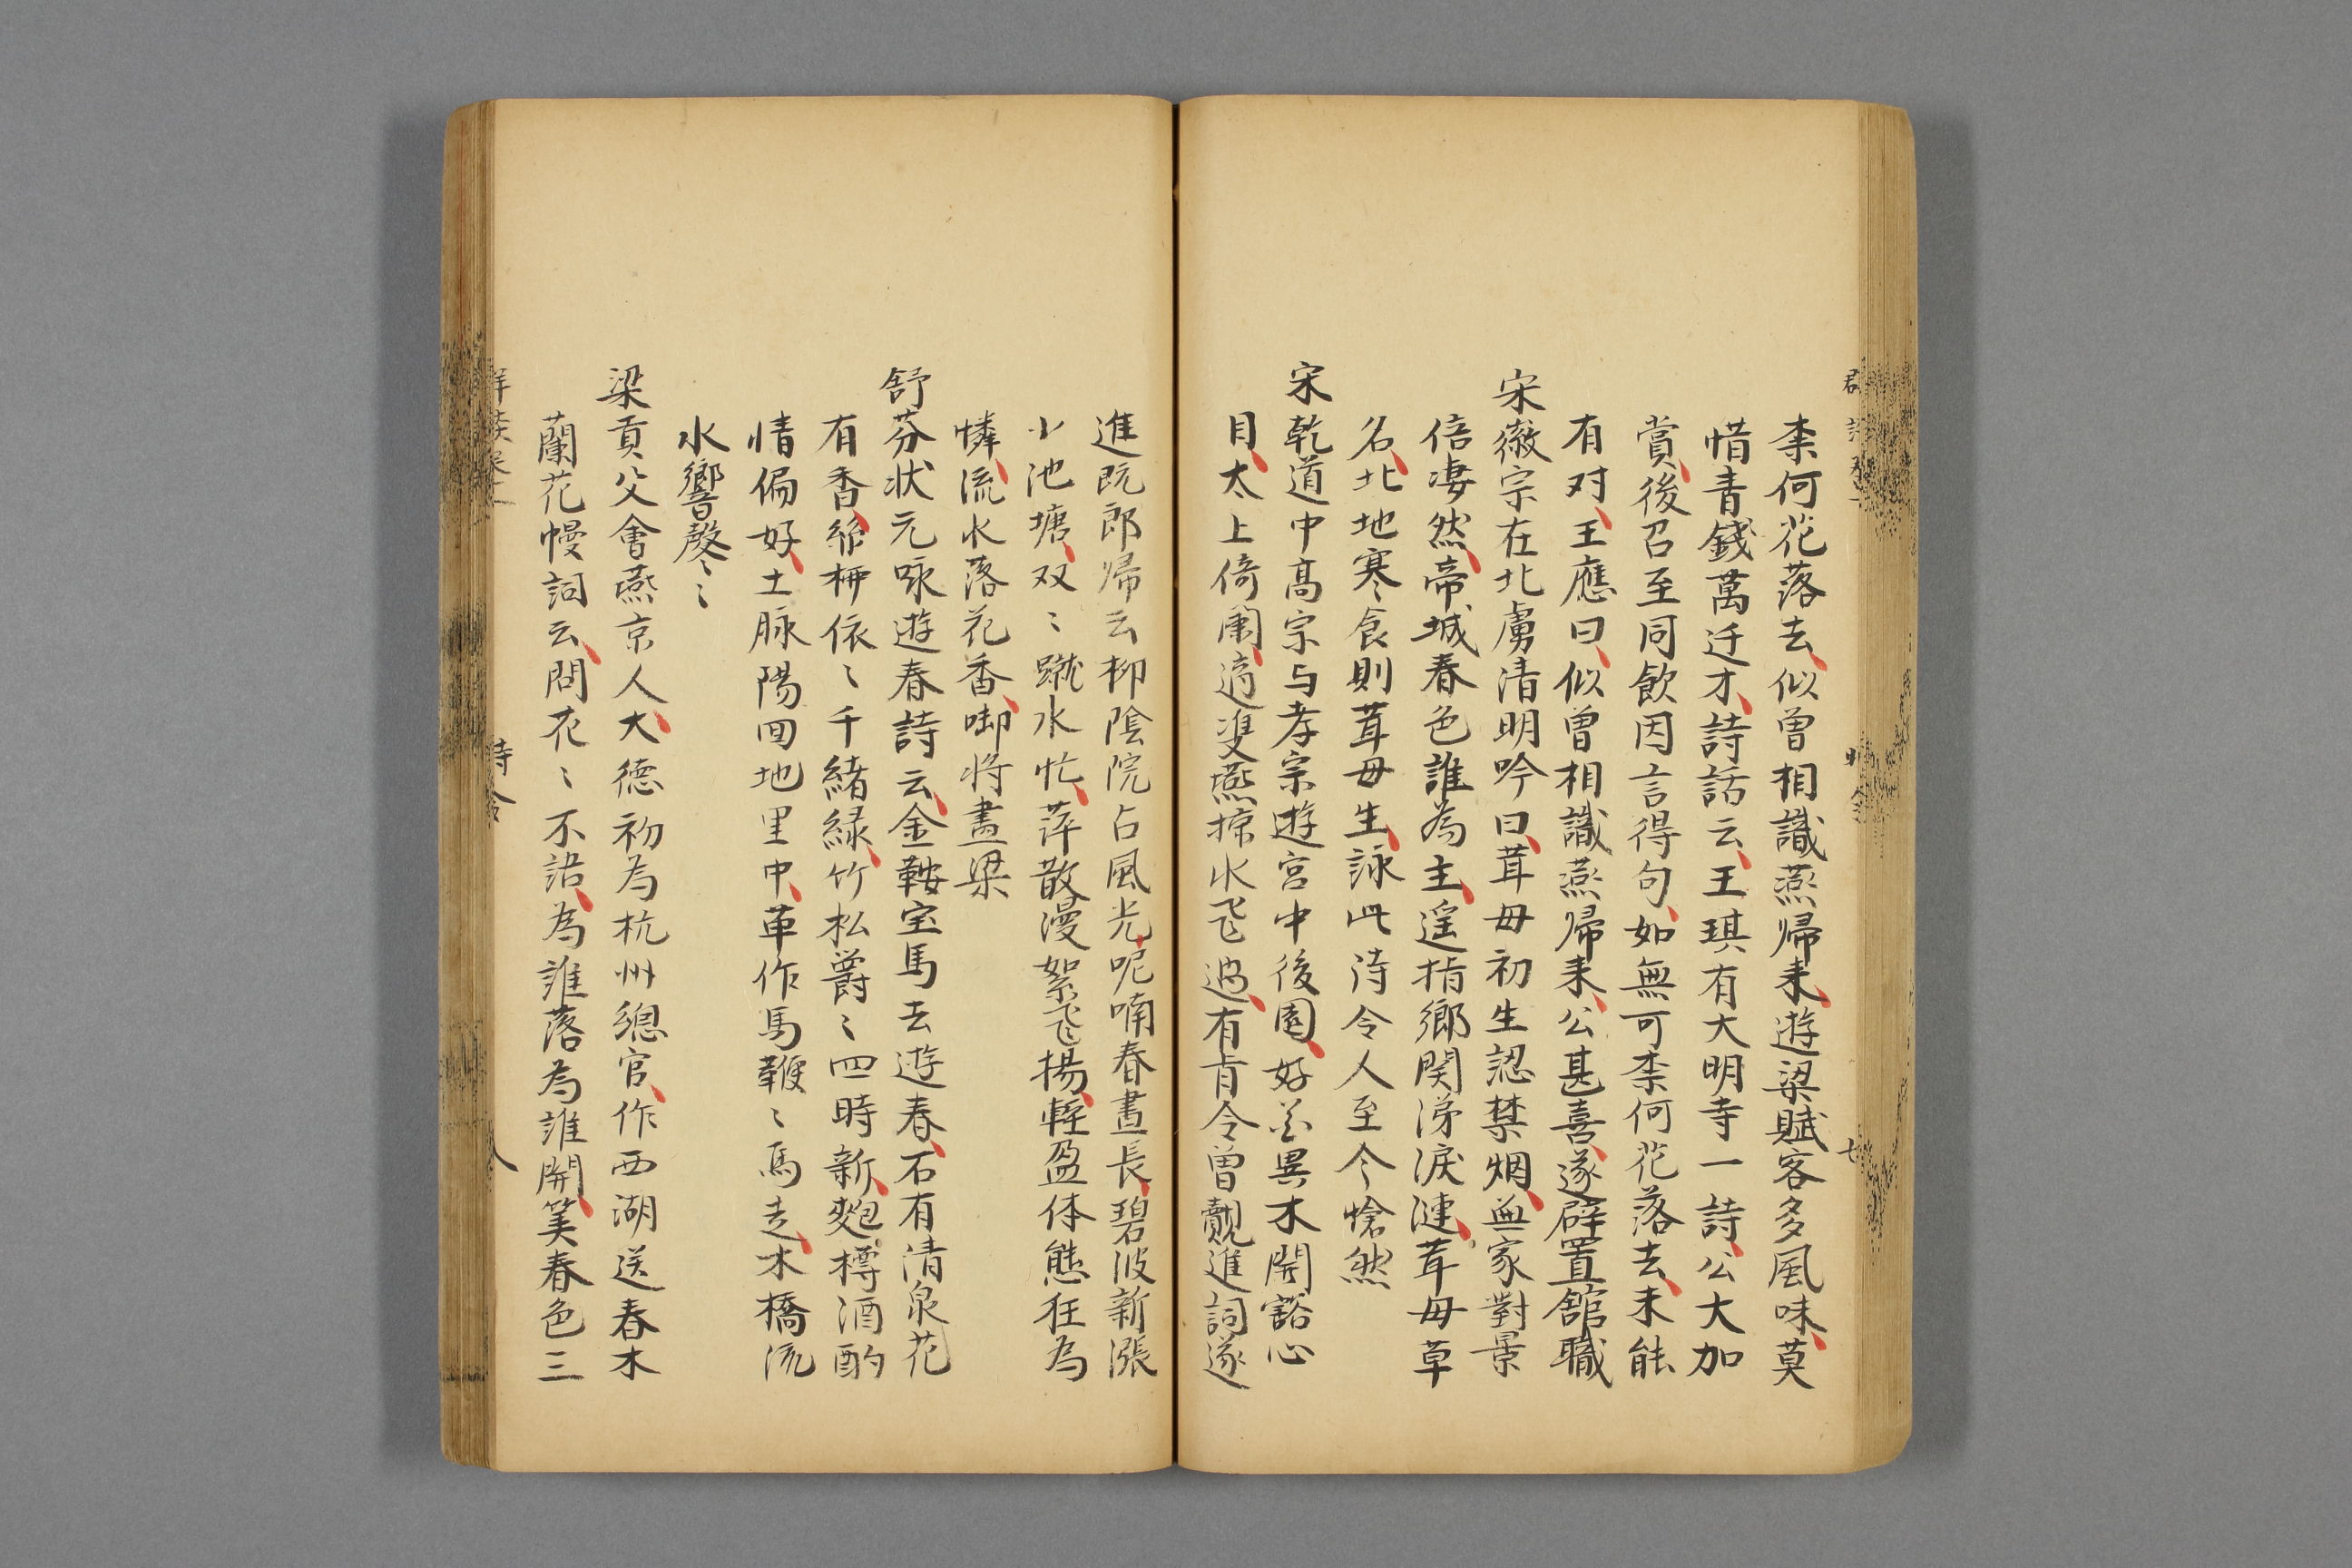 柰何花落去、似曾相識燕歸来、遊梁賦客多風味、莫
惜青錢萬迁才、詩話云、王琪有大明寺一詩、公大加
賞、後召至同飲因言得句、如無可柰何花落去、未能
有对、王應曰、似曾相識燕歸来、公甚喜、遂辟置舘職
宋徽宗在北虜清明吟曰、茸毋初生認禁烟、無家對景
倍凄然、帝城春色誰為主、遥指鄉関涕淚漣、茸毋草
名、北地寒食則茸毋生、詠此诗令人至今愴然
宋乾道中高宗与孝宗遊宮中後園、好花異木開豁心
目、太上倚闌、適雙燕掠水飞過、有旨令曾覿進詞遂
進阮郎歸云柳陰院占風光、呢喃春晝長、碧波新漲
小池塘、双〻蹴水忙、萍散漫絮飛揚、輕盈体態狂為
憐、流水落花香、啣将畫梁
舒芬状元咏遊春詩云、金鞍宝馬去遊春、石有清泉花
有香、絲柳依〻千緒緑、竹松爵〻四時新、麹樽酒酌
情偏好、土脉陽囬地里中、革作馬鞭〻馬走、木橋流
水響聲〻
梁貢父會燕京人、大德初為杭州總官、作西湖送春木
蘭花幔詞云、問花〻不語、為誰落為誰開、笑春色三
詩令
八
七